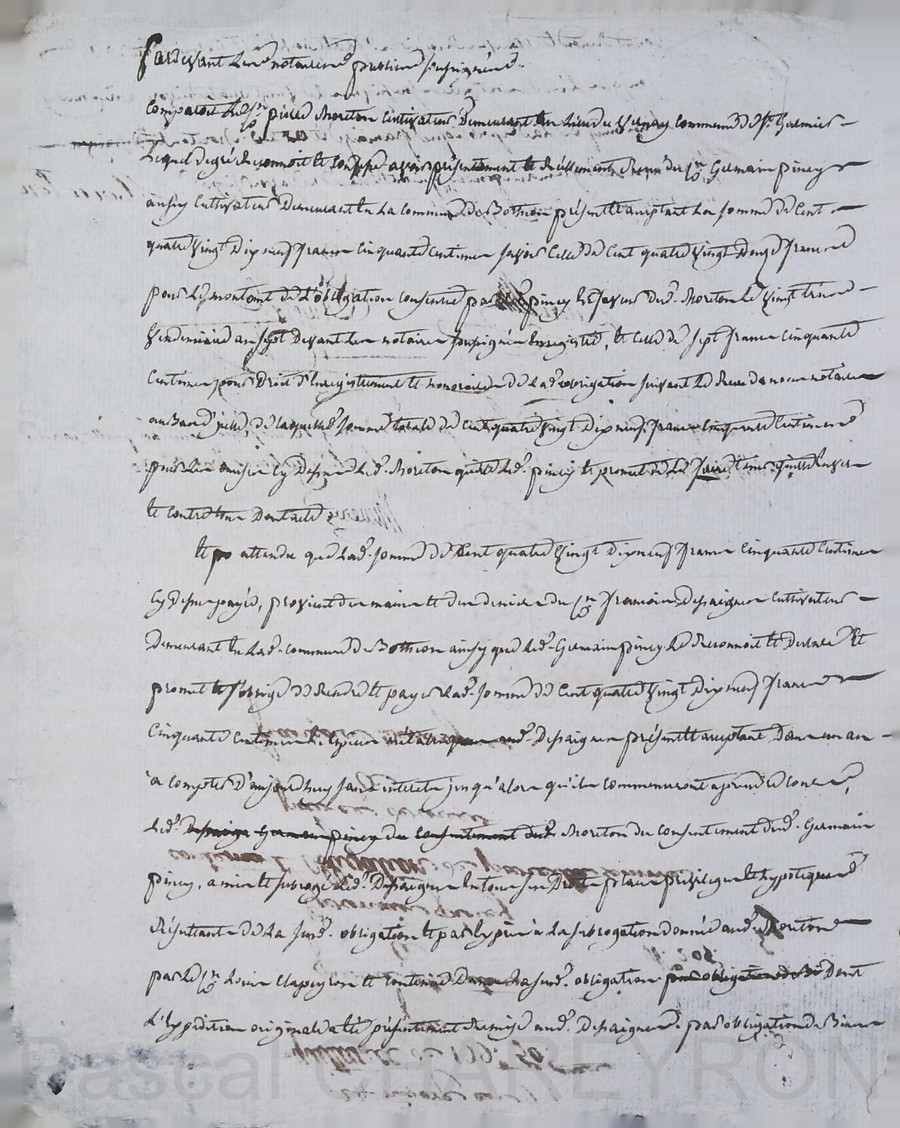 Pardevant les notaires publics soussignés
Comparoit le Cn pierre Moreton Cultivateur Demeurant lieu de commune de St. Galmier
Lequel de gré Reconnoit et Confesse avoir présentement et Réellement Reçu du Cn Germain piney
aussy Cultivateur Demeurant en La commune de Bothion présent et aceptant La somme de Cent
quatre Vingt Dix neuf francs Cinquante Centimes savoir Celle de Cent quatre Vingt Douze francs
pour Le montant de L'obligation consentie par led. piney en faveur dud. Moreton Le Vingt trois
Vendemiaire an sept Devant Les notaires soussignés Enregistré, et Celle de sept francs Cinquante
Centimes pour Droit d'Enregistrement et honoraires de lad. obligation suivant Le Recu de nous notaire
au Bas d'icelle, de laquelle somme totale de Cent quatre Vingt Dix neuf francs Cinquante Centimes
pour Les causes Cy Dessus Led. Moreton quitte Led. piney et promet faire tenir quitte Envers
et contre tous Dont acte
Et attendu que Lad. somme de Cent quatre Vingt Dix neuf francs Cinquante Centimes
Cy Dessus payée, provient des mains et des deniers du Cn francois Despaigne Cultivateur
Demeurant En Lad. commune de Bothion ainsy que Led. Germain piney Le Reconnoit et Declare Et
promet et s'oblige de Rendre et payer Lad. somme de Cent quatre Vingt Dix neuf francs
Cinquante Centimes En Especes metalique aud. Despaigne présent et aceptant Dans un an
a compter D'aujourdhuy sans interets jusqu'alors qu'ils commenceront a prendre cours,
Led. Moreton du consentement dud. Germain
piney, a mis et subrogé Led. Despaigne En tous ses Droits place privilege et hypoteque
Résultante de La susd. obligation et par Exprès à La subrogation donnée aud. Moreton
par le Cn Clapeyron et contenue Dans La susd. obligation Dont
L'Expédition originale a été présentement Remise aud. Despaigne par obligation de Biens
Pascal CHAREYRON